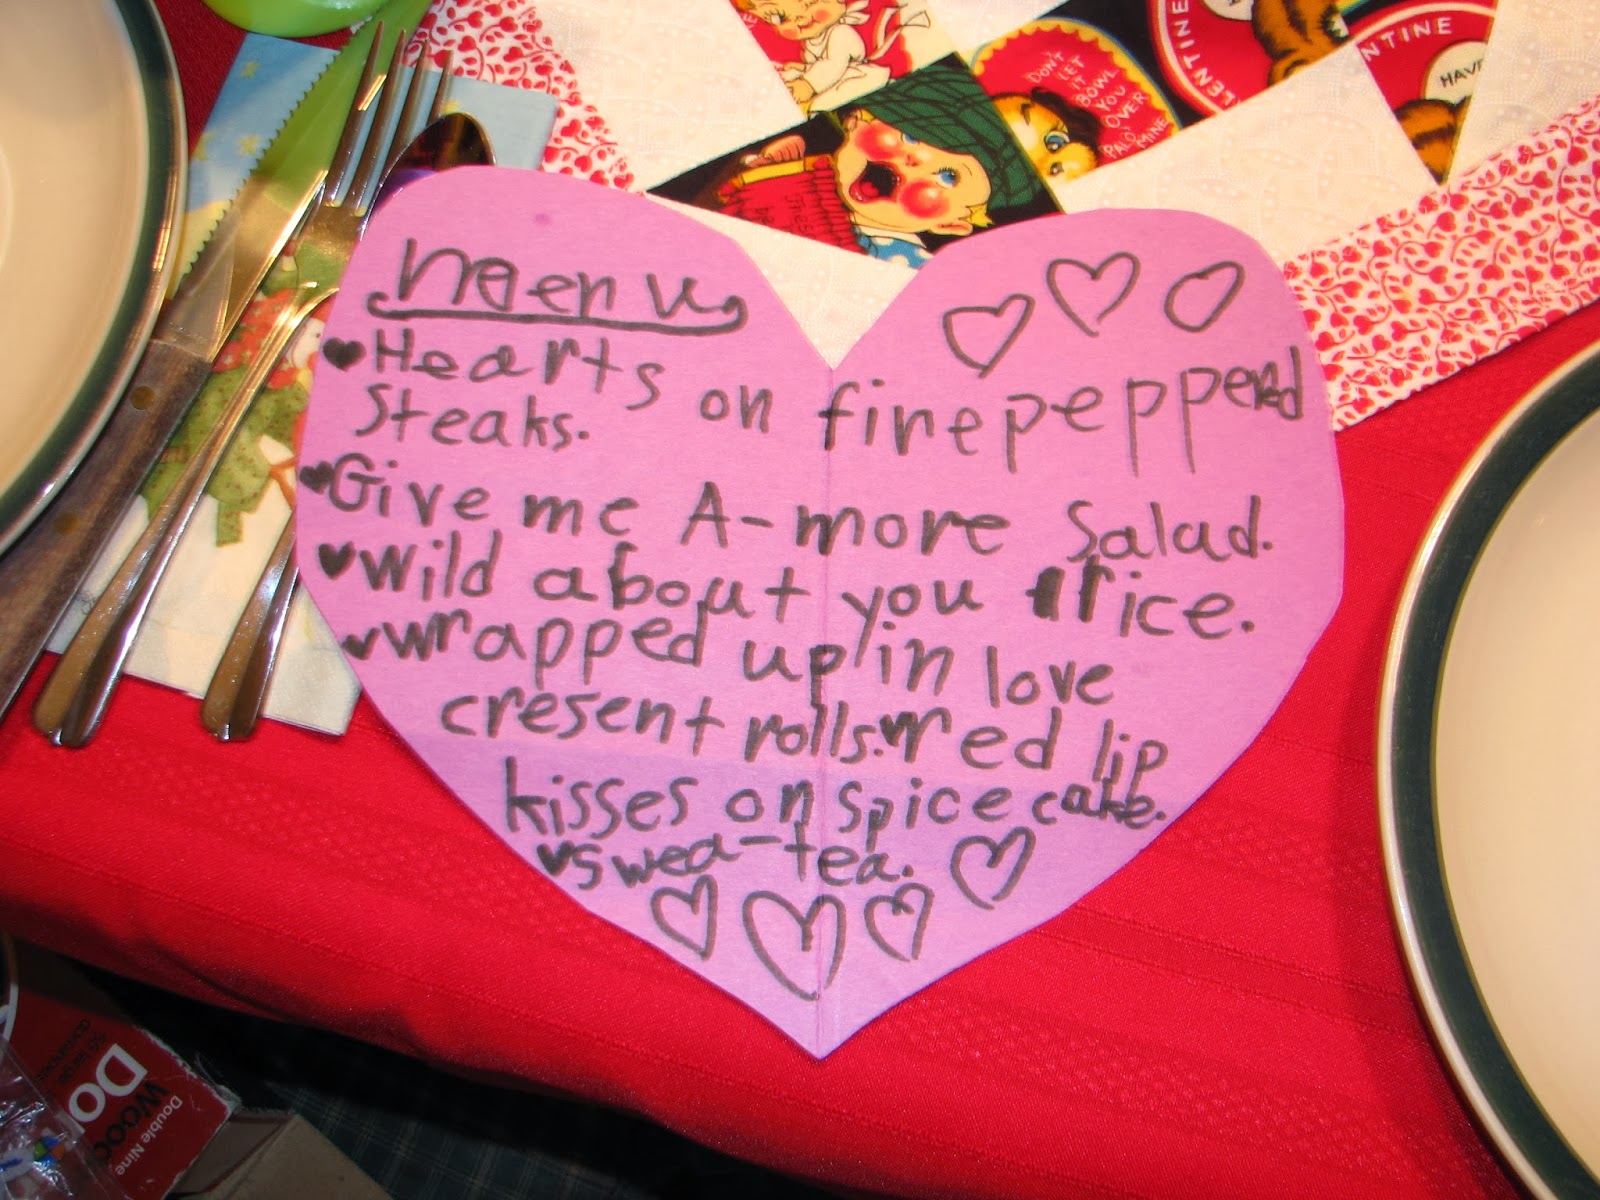 DON'T
LET
IT
BOWL
YOU
OVER
PALO'
MINE
VALENTINE
NTINE
HAVE
menu
Hearts on finepeppered
Steaks.
Give me A-more Salad.
wild about you rice.
wrapped up in love
cresent rolls. red lip
kisses on spice cake.
swea-tea.
Double Nine